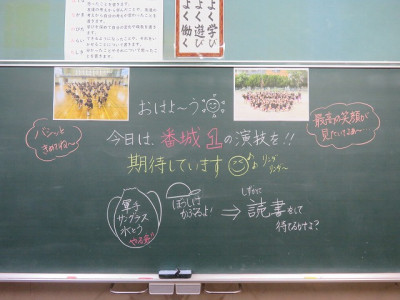 よく学び
よく遊び
よく働く
おはよ〜う
今日は、番城1の演技を!!
期待しています
バシーっと
きめてね〜
最高の笑顔が
見たいなぁ〜
軍手
サングラス
水とう
やる気!!
ぼうしは
かぶるよ!
⇒
しずかに
読書をして
待てるかな?